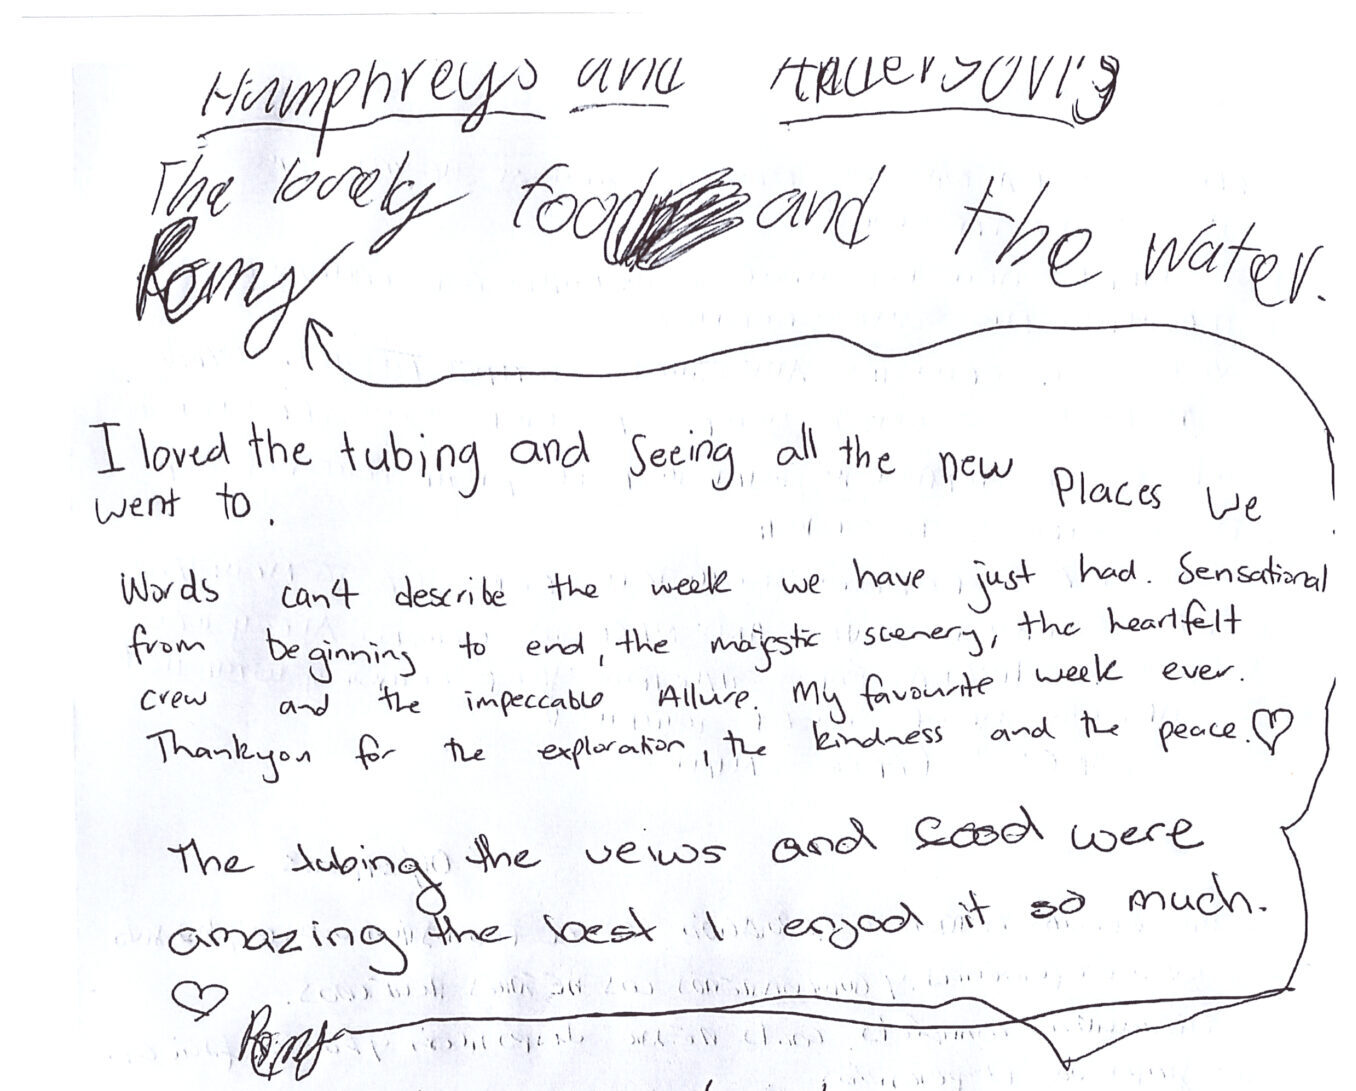 Humphreys and Andersons
The lovely food and the water.
Romy
I loved the tubing and seeing all the new Places we
went to.
Words can't describe the week we have just had. Sensational
from beginning to end, the majestic scenery, the heartfelt
crew and the impeccable Allure. My favourite week ever.
Thankyou for the exploration, the kindness and the peace. ♡
The tubing the veiws and food were
amazing the best I enjod it so much.
♡
Romy